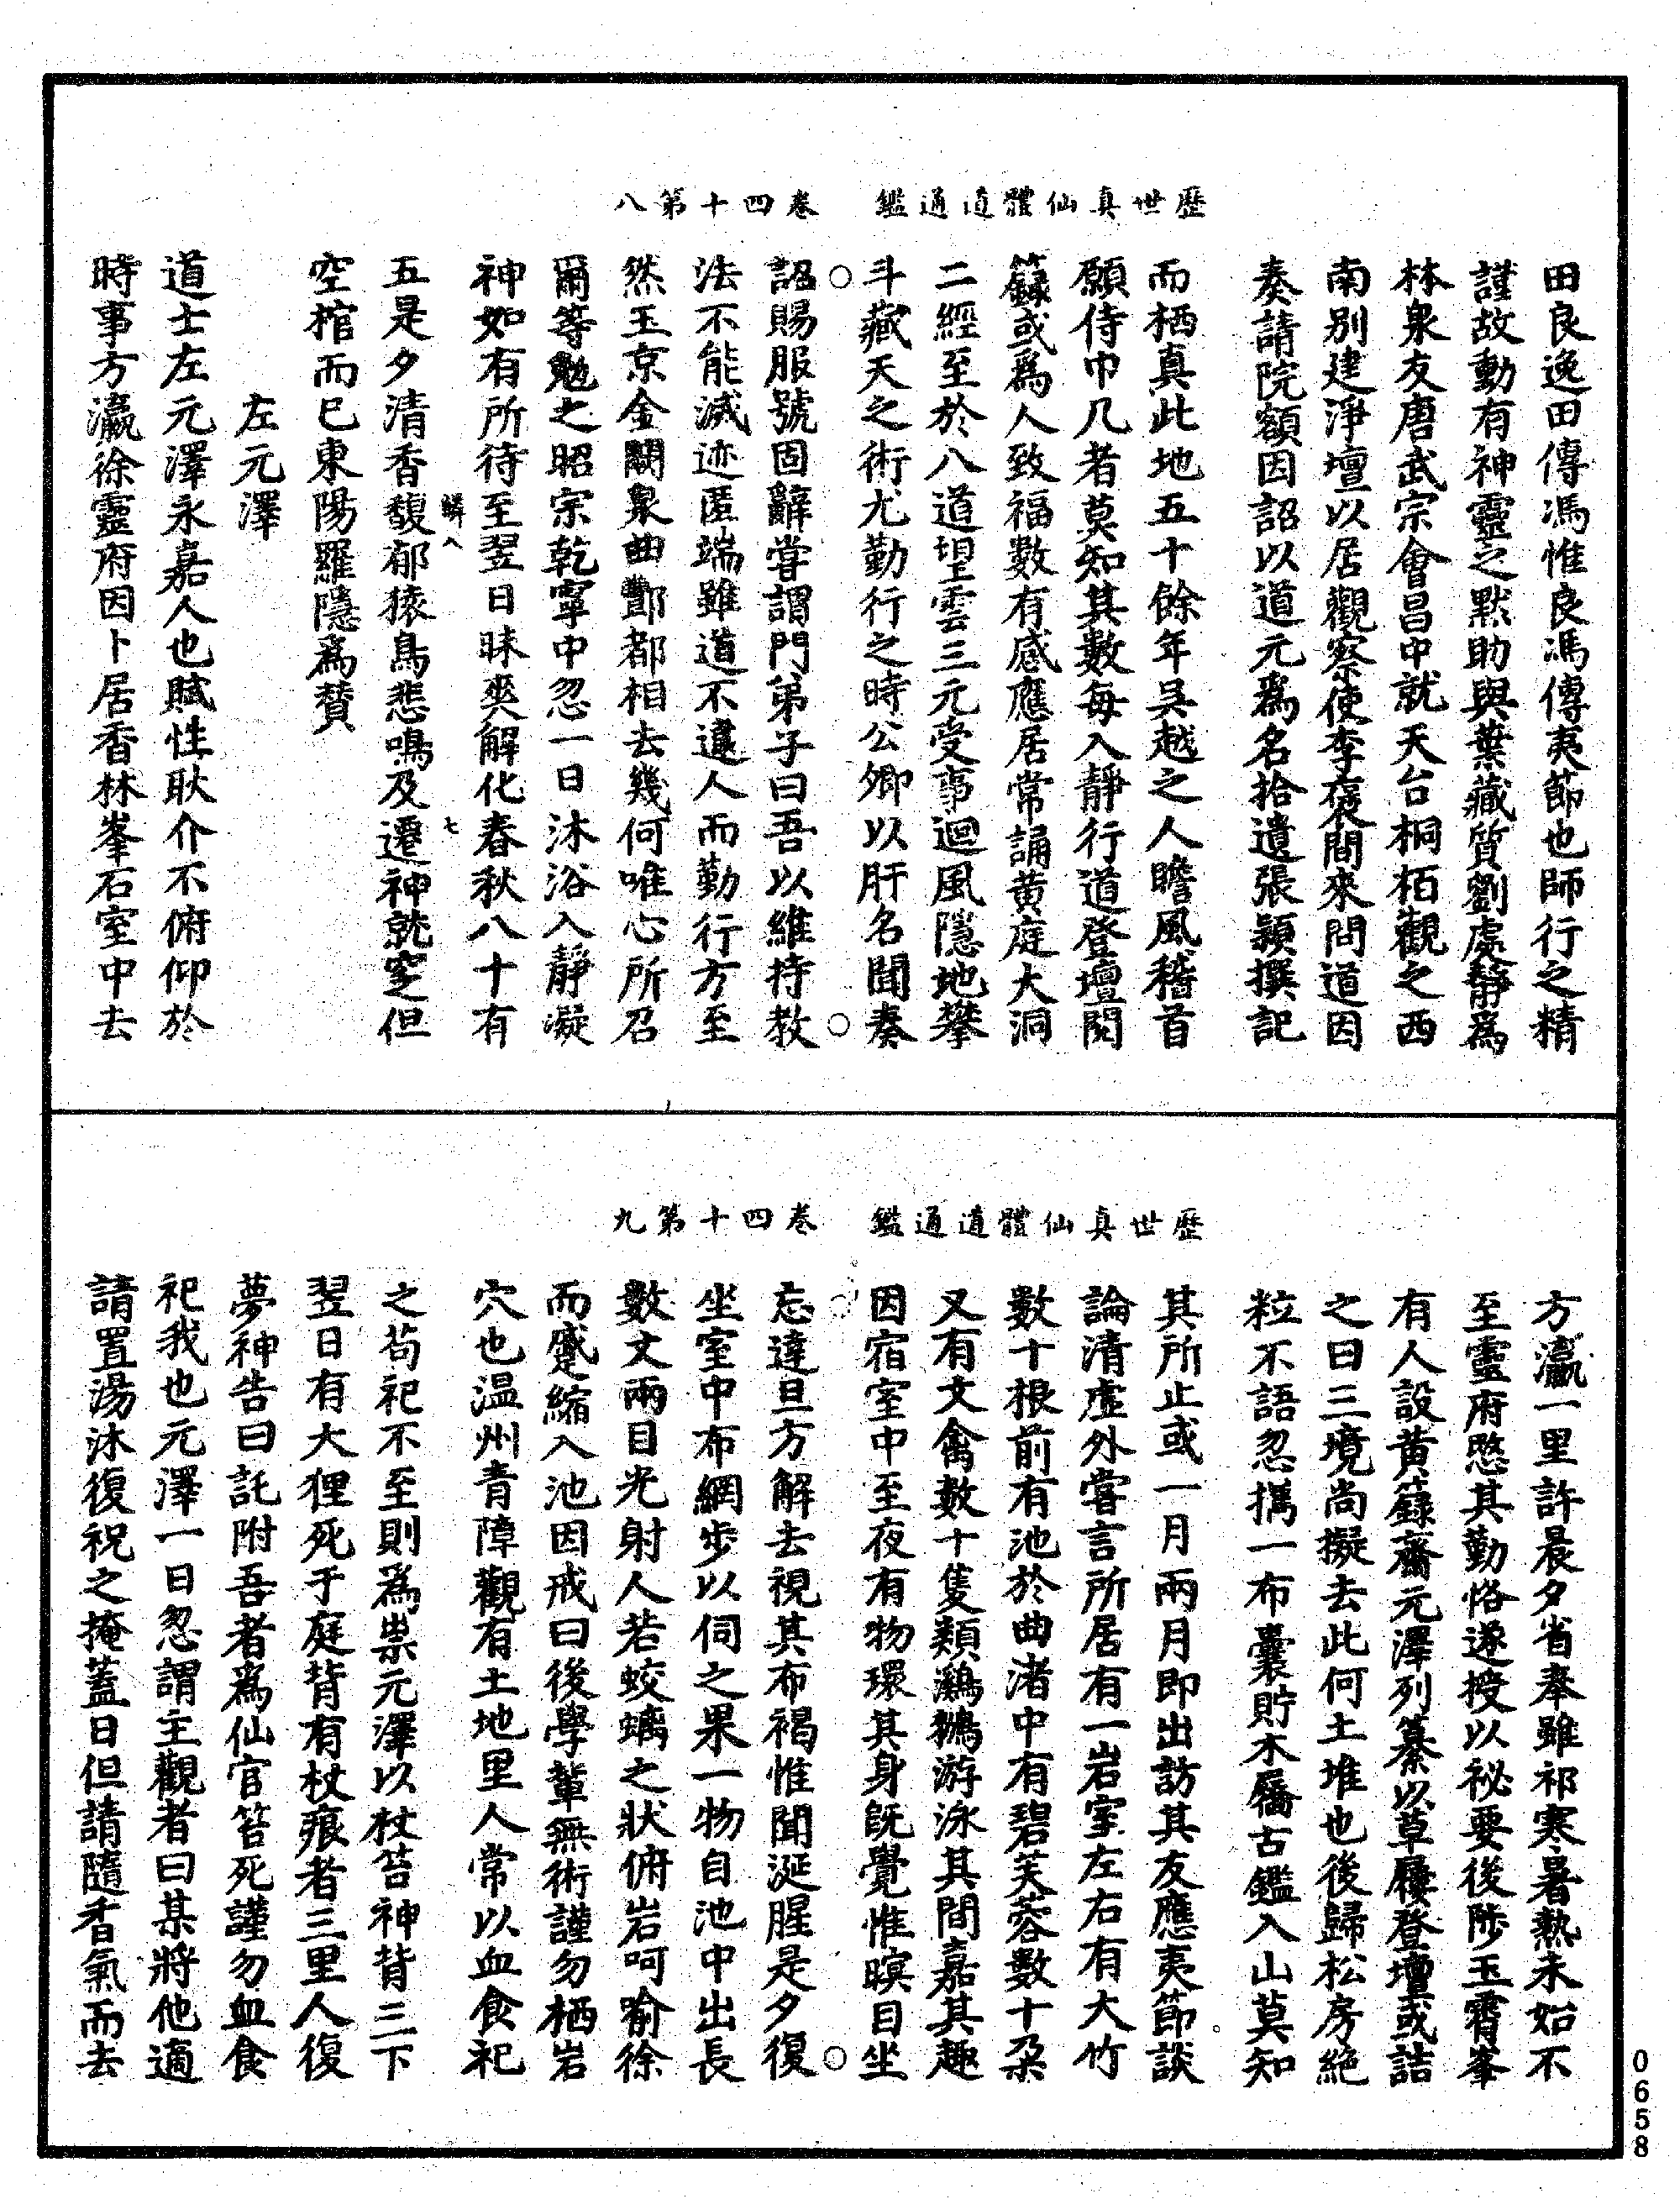 歷世真仙體道通鑑　卷四十第八
田良逸田傳馮惟良馮傳夷節也師行之精
謹故動有神靈之默助與葉藏質劉處靜為
林泉友唐武宗會昌中就天台桐栢觀之西
南別建淨壇以居觀察使李褒聞來問道因
奏請院額因詔以道元為名拾遺張穎撰記
而栖真此地五十餘年吳越之人瞻風稽首
願侍巾几者莫知其數每入靜行道登壇閱
籙或為人致福數有感應居常誦黃庭大洞
二經至於八道望雲三元受事迴風隱地攀
斗藏天之術尤勤行之時公卿以肝名聞奏
詔賜服號固辭嘗謂門弟子曰吾以維持教
法不能滅迹匿端雖道不違人而勤行方至
然玉京金闕泉曲酆都相去幾何唯心所召
爾等勉之昭宗乾寧中忽一日沐浴入靜凝
神如有所待至翌日昧爽解化春秋八十有
鱗八　七
五是夕清香馥郁猿鳥悲鳴及遷神就窆但
空棺而已東陽羅隱為贊
左元澤
道士左元澤永嘉人也賦性耿介不俯仰於
時事方瀛徐靈府因卜居香林峯石室中去
歷世真仙體道通鑑　卷四十第九
方瀛一里許晨夕省奉雖祁寒暑熱未始不
至靈府愍其勤恪遂授以祕要後陟玉霄峯
有人設黃籙齋元澤列纂以草屨登壇或詰
之曰三境尚擬去此何土堆也後歸松房絕
粒不語忽攜一布囊貯木屩古鑑入山莫知
其所止或一月兩月即出訪其友應夷節談
論清虛外嘗言所居有一岩室左右有大竹
數十根前有池於曲渚中有碧芙蓉數十朶
又有文禽數十隻類鸂鶒游泳其間嘉其趣
因宿室中至夜有物環其身旣覺惟瞑目坐
忘達旦方解去視其布褐惟聞涎腥是夕復
坐室中布網步以伺之果一物自池中出長
數丈兩目光射人若蛟螭之狀俯岩呵喻徐
而蹙縮入池因戒曰後學輩無術謹勿栖岩
穴也温州青障觀有土地里人常以血食祀
之苟祀不至則為祟元澤以杖笞神背三下
翌日有大狸死于庭背有杖痕者三里人復
夢神告曰託附吾者為仙官笞死謹勿血食
祀我也元澤一日忽謂主觀者曰某將他適
請置湯沐復祝之掩蓋日但請隨香氣而去
0658